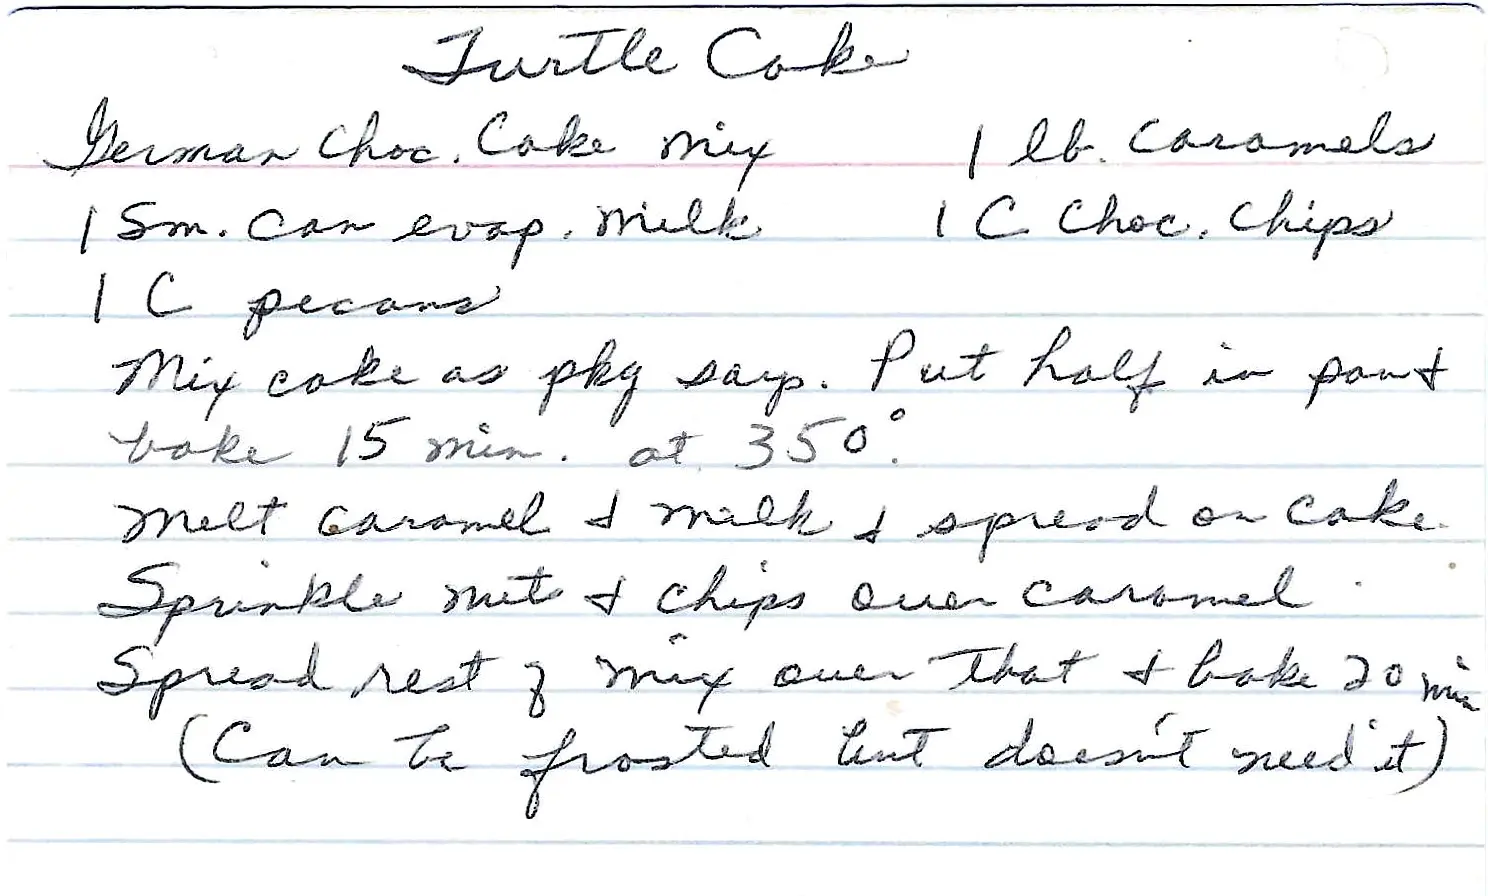 Turtle Cake
German Choc. Cake Mix 1 lb. Caramels
1 Sm. Can evap. Milk 1 C Choc. Chips
1 C pecans
Mix cake as pkg says. Put half in pan &
bake 15 min. at 350°.
Melt caramel & milk & spread on cake.
Sprinkle nuts & chips over caramel
Spread rest of mix over that & bake 20 min
(Can be frosted but doesn't need it)